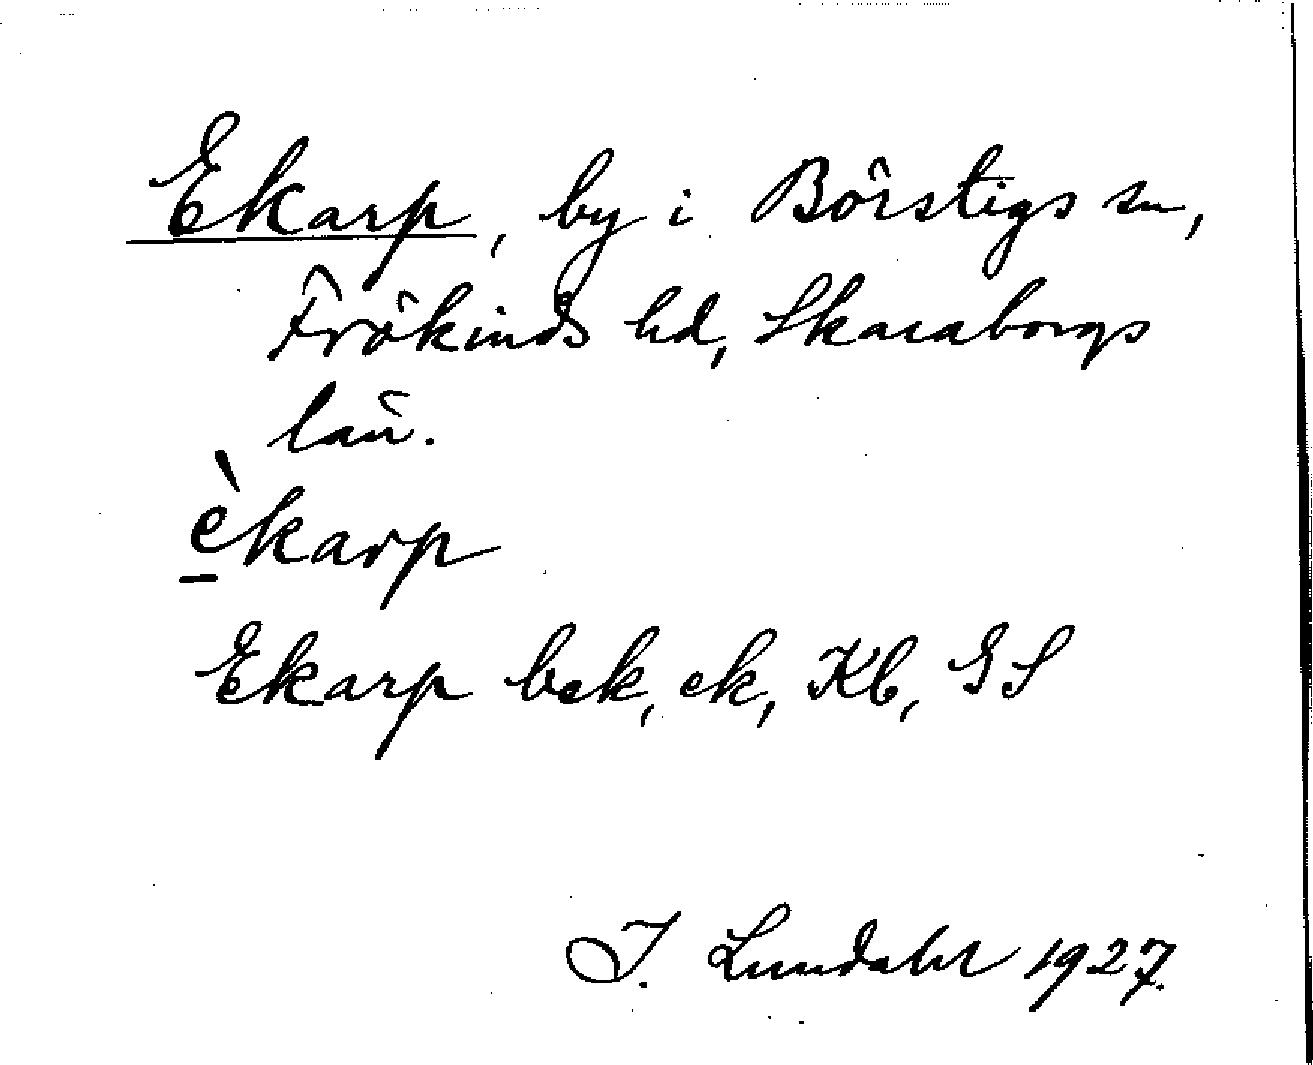 Ekarp, by i Börstigs sn,
Frökinds hd, Skaraborgs
län.
èkarp
Ekarp bek, ek, Kb, GS
I. Lundahl 1927.